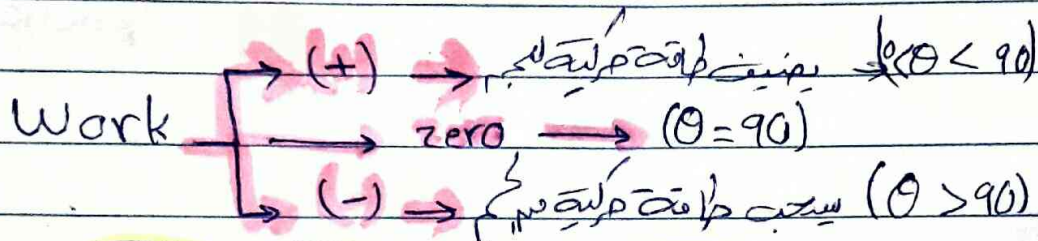 (+) → يضيف طاقة حركية للجسم (0<θ < 90)
Work → zero → (θ = 90)
(-) → يسحب طاقة حركية من الجسم (θ >90)